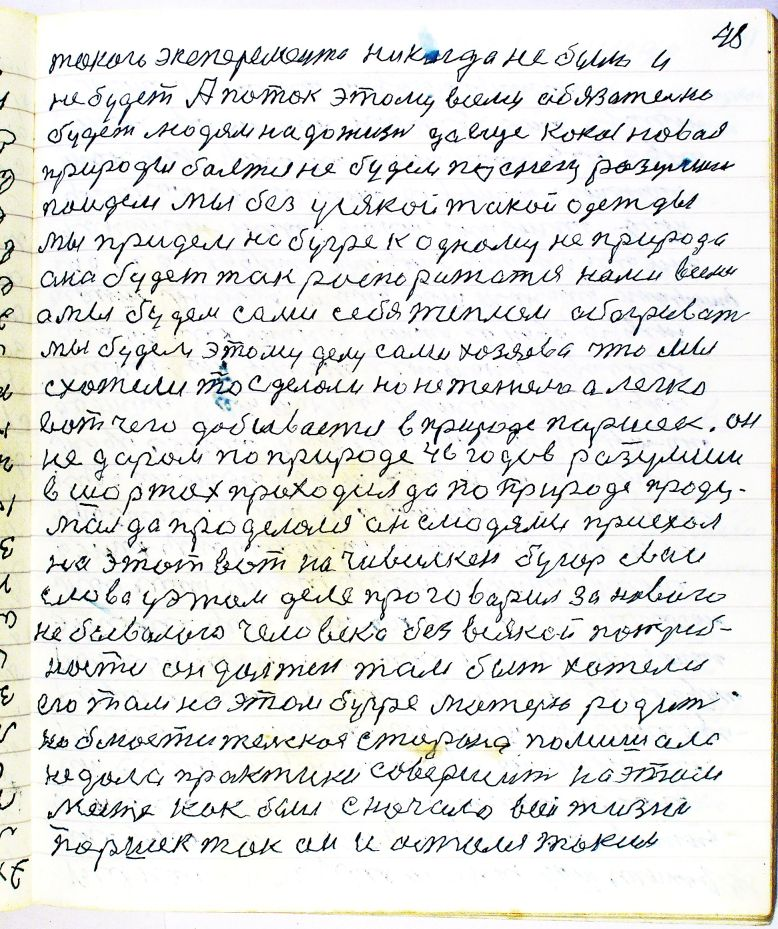 48
такого эксперемента никогда не было и
не будет А поток этому всему обязателно
будет людям надо жизн да еще кокоя новая
природы баятся не будем по снегу разутыи
поидем мы без усякой такой одежды
мы придем на бугре к одному не природа
она будет так роспоритатся нами всеми
а мы будем сами себя теплом обогриват
мы будем этому делу сами хозяева что мы
схотели то сделоли но не тежело а легко
вот чего добываетя в природе паршек. он
не даром по природе 46 годов разутыи
в шортах проходил да по природе проду-
мал да проделол он слюдями приехол
на этот вот на Чивилкен бугор сваи
слова у этом деле проговорил за нового
небывалого человека без всякой потриб-
ности он должен там быт хотели
его там на этом бугре матерь родит
но бласти женская сторона помишала
не дала практики совершит на этом
месте как был сначало вои жизни
Паршек так он и асталя таким